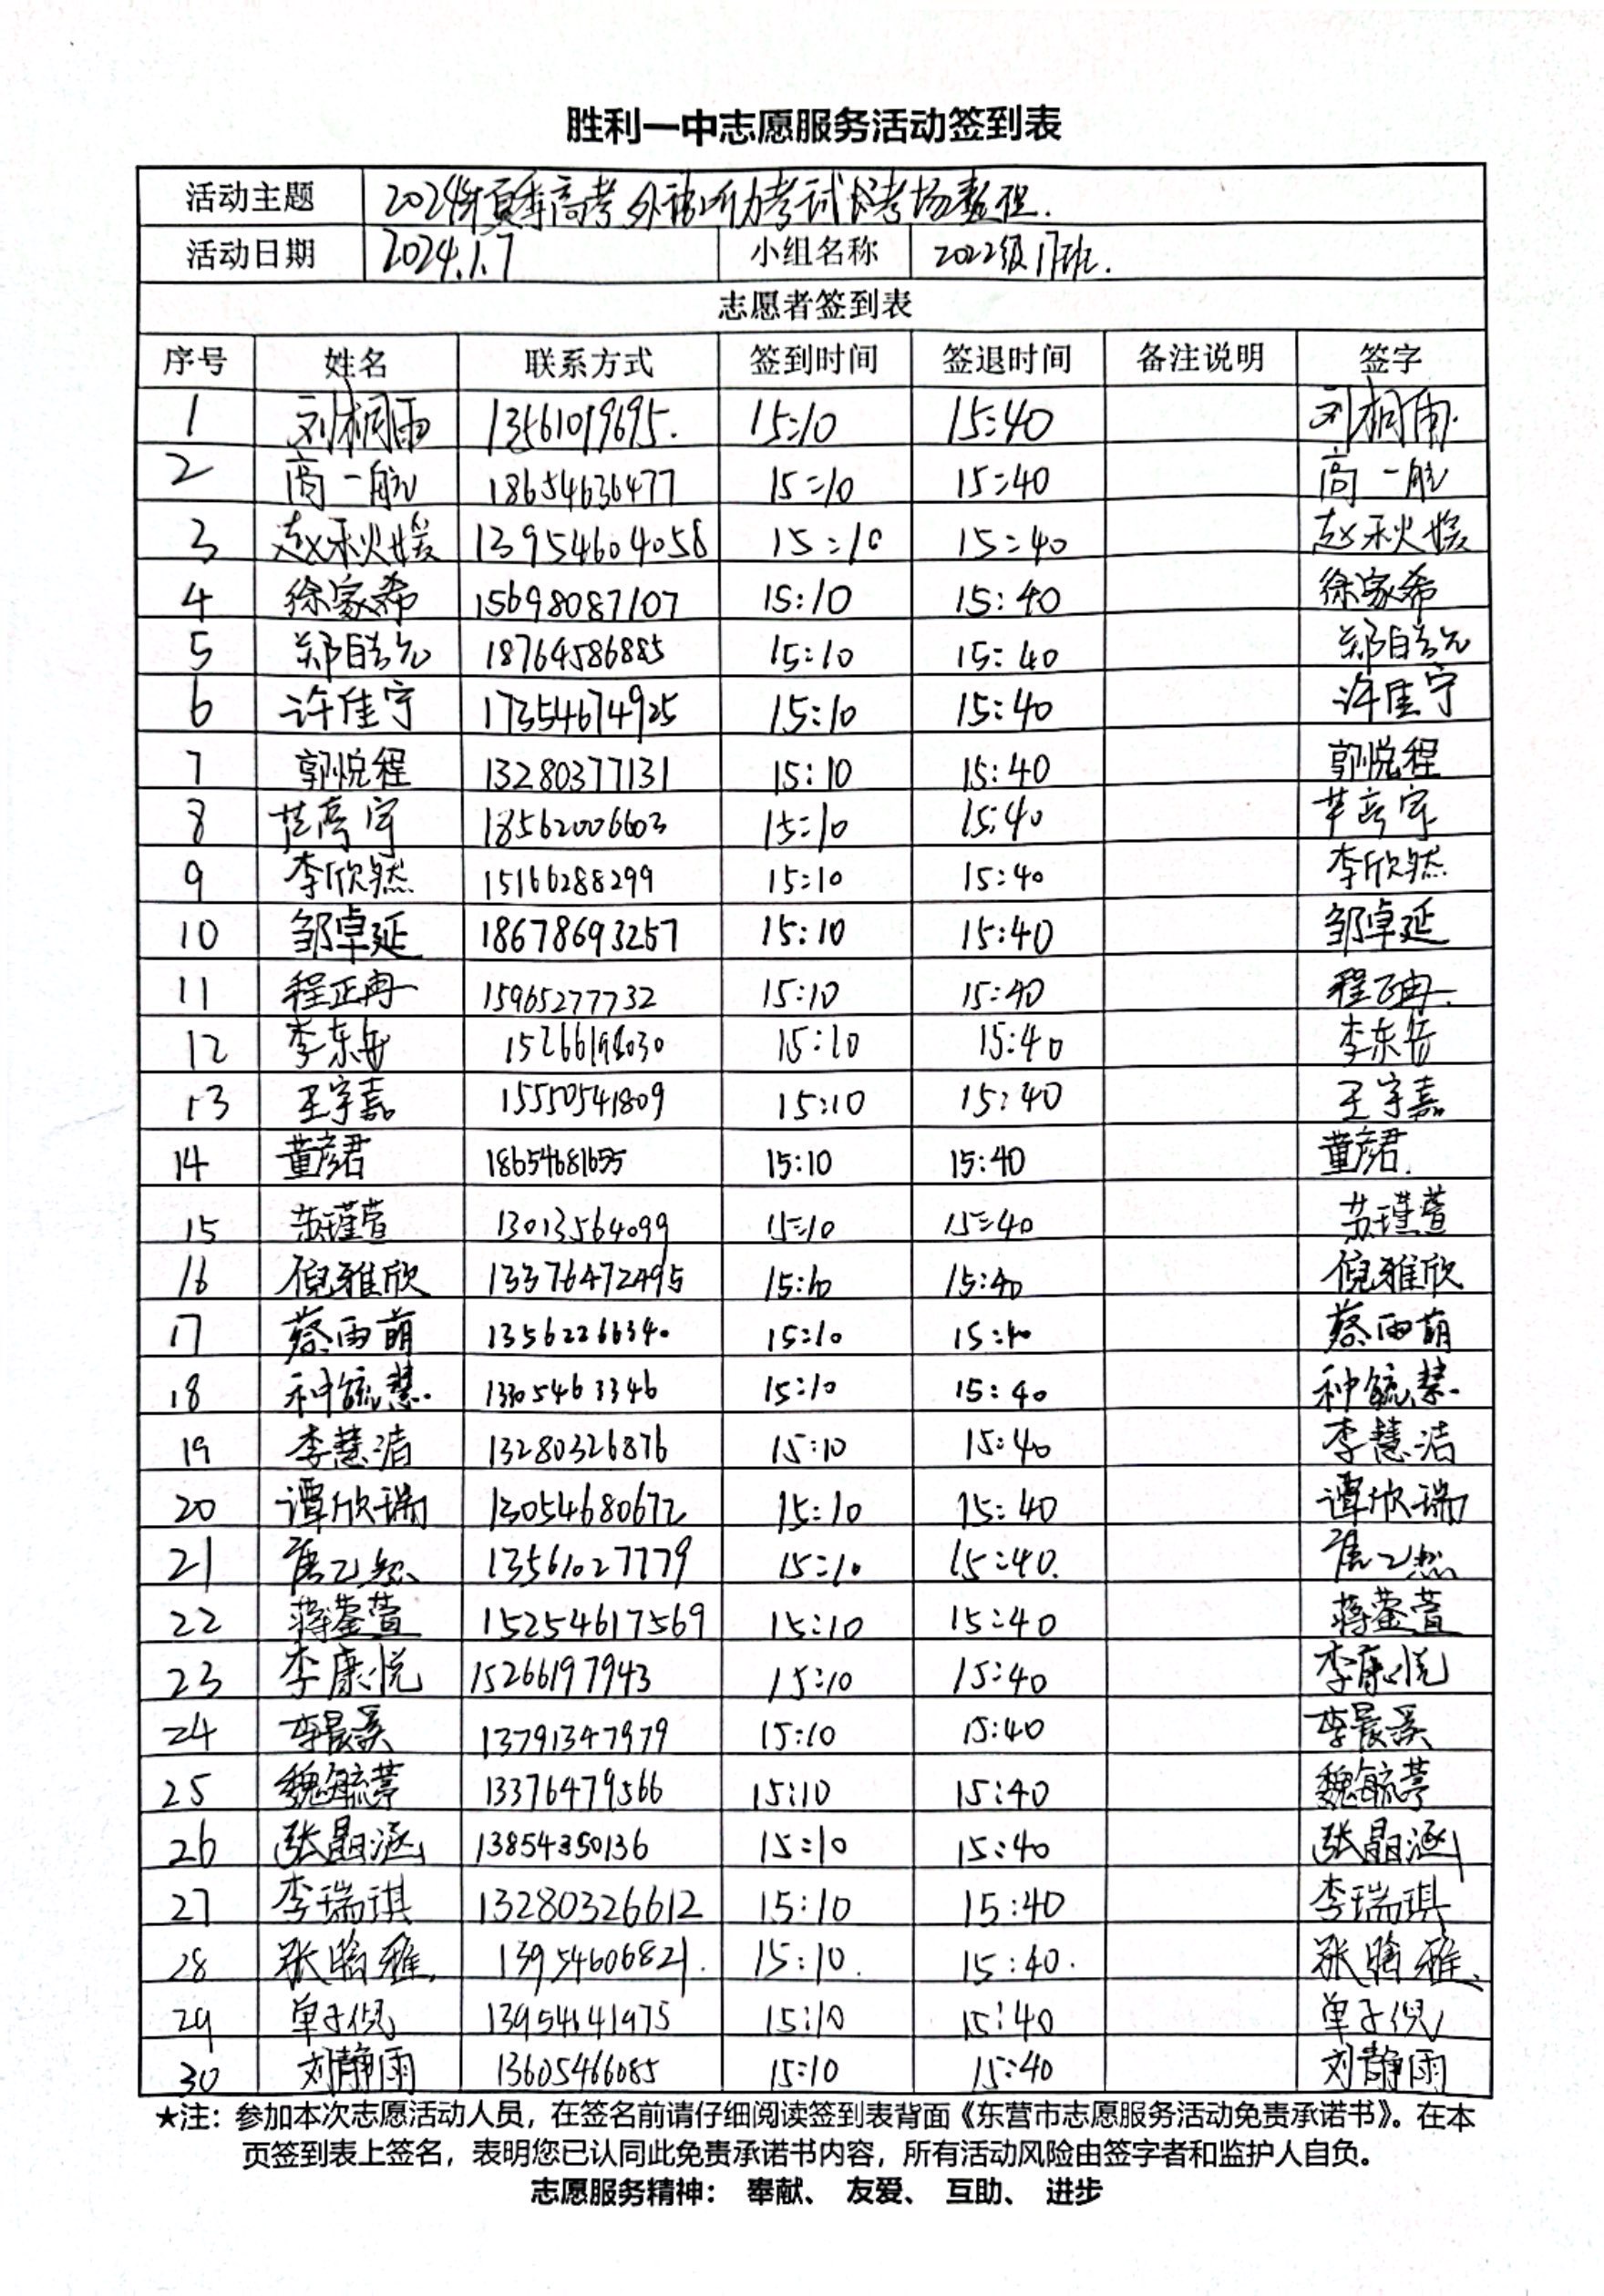 胜利一中志愿服务活动签到表
活动主题 2024年夏季高考外语听力考试考场整理.
活动日期 2024.1.7 小组名称 2022级17班.
志愿者签到表
序号 姓名 联系方式 签到时间 签退时间 备注说明 签字
1 刘桐雨 13561019695. 15:10 15:40 刘桐雨.
2 高一航 18654636477 15:10 15:40 高一航
3 赵秋媛 13954604058 15:10 15:40 赵秋媛
4 徐家希 15698087107 15:10 15:40 徐家希
5 郑皓允 18764586885 15:10 15:40 郑皓允
6 许佳宁 17354674925 15:10 15:40 许佳宁
7 郭悦程 13280377131 15:10 15:40 郭悦程
8 18562006603 15:10 15:40
9 李欣然 15166288299 15:10 15:40 李欣然
10 邹卓延 18678693257 15:10 15:40 邹卓延
11 程正冉 15965277732 15:10 15:40 程正冉.
12 李东 15266198030 15:10 15:40 李东
13 王宇嘉 15550541809 15:10 15:40 王宇嘉
14 董彦君 18654681655 15:10 15:40 董彦君.
15 苏瑾萱 13013564099 15:10 15:40 苏瑾萱
16 倪雅欣 13376472495 15:10 15:40 倪雅欣
17 蔡雨萌 13562266340 15:10 15:40 蔡雨萌
18 种毓慧. 13305463346 15:10 15:40 种毓慧.
19 李慧洁 13280326876 15:10 15:40 李慧洁
20 谭欣瑞 13054680672 15:10 15:40 谭欣瑞
21 唐乙然 13561027779 15:10 15:40. 唐乙然
22 蒋蓥萱 15254617569 15:10 15:40 蒋蓥萱
23 李康悦 15266197943 15:10 15:40 李康悦
24 李晨溪 13791347979 15:10 15:40 李晨溪
25 魏毓葶 13376479566 15:10 15:40 魏毓葶
26 张晶涵 13854350136 15:10 15:40 张晶涵
27 李瑞琪 13280326612 15:10 15:40 李瑞琪
28 张晗雅. 13954606821. 15:10. 15:40. 张晗雅.
29 单子倪 13954641975 15:10 15:40 单子倪
30 刘静雨 13605466085 15:10 15:40 刘静雨
★注：参加本次志愿活动人员，在签名前请仔细阅读签到表背面《东营市志愿服务活动免责承诺书》。在本
页签到表上签名，表明您已认同此免责承诺书内容，所有活动风险由签字者和监护人自负。
志愿服务精神： 奉献、 友爱、 互助、 进步